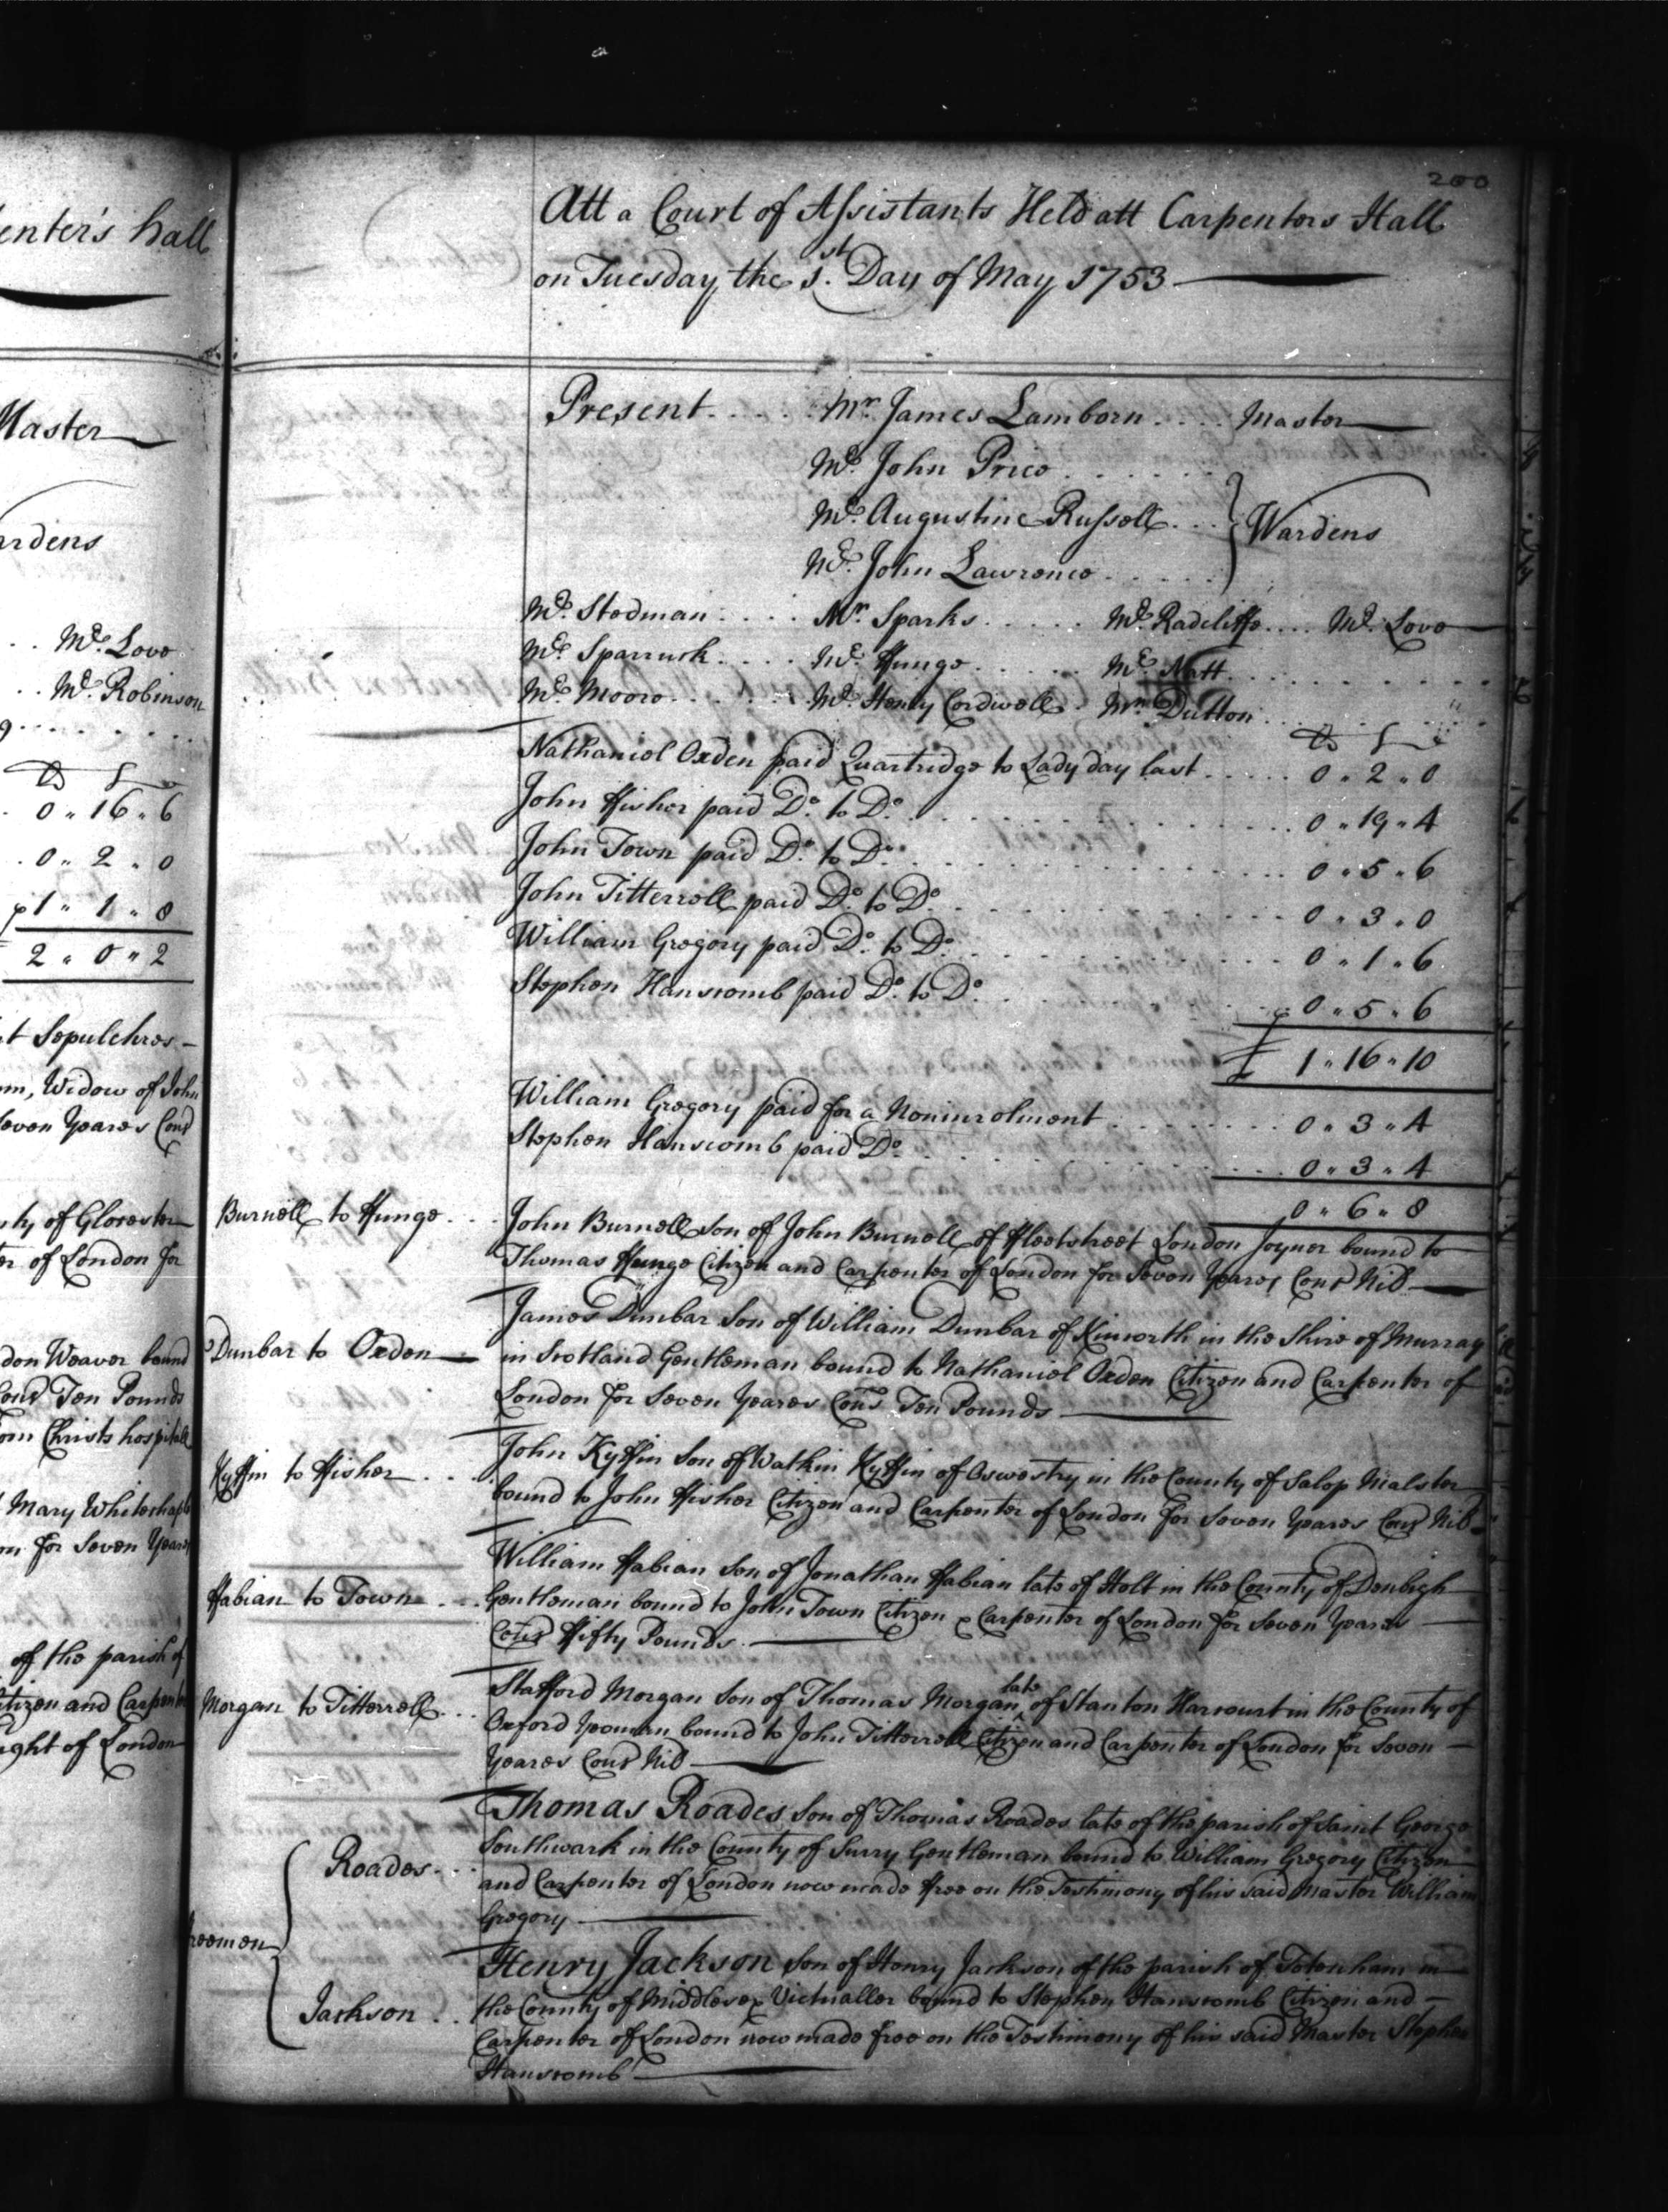 enter's hall
Master
ardens
Mr. Love
Mr. Robinson
0 " 16 " 6
0 " 2 " 0
1 " 1 " 8
2 " 0 " 2
t Sepulchres
m, Widow of John
seven Yeares Cons
ty of Glocester
er of London for
don Weaver bound
Cons Ten Pounds
om Christs hospitall
Mary Whitechaple
on for Seven Years
of the parish of
Citizen and Carpenter
ight of London
200
Att a Court of Assistants Held att Carpenters Hall
on Tuesday the 1st. Day of May 1753
Present .... Mr. James Lamborn .... Master
Mr. John Price
Mr. Augustine Russell ... Wardens
Mr. John Lawrence
Mr. Stedman .... Mr. Sparks .... Mr. Radcliffe .... Mr. Love
Mr. Sparruck .... Mr. Funge .... Mr. Natt
Mr. Moore .... Mr. Henry Cordwell . Mr. Dutton
Nathaniel Oxden paid Quartridge to Lady day last ..... 0 " 2 " 0
John Fisher paid Do. to Do. ..... 0 " 19 " 4
John Town paid Do. to Do. ..... 0 " 5 " 6
John Titterrell paid Do. to Do. ..... 0 " 3 " 0
William Gregory paid Do. to Do. ..... 0 " 1 " 6
Stephen Hanscomb paid Do. to Do. ..... 0 " 5 " 6
£ 1 " 16 " 10
William Gregory paid for a Noninrolment ..... 0 " 3 " 4
Stephen Hanscomb paid Do. ..... 0 " 3 " 4
0 " 6 " 8
Burnell to Funge ... John Burnell son of John Burnell of Fleetstreet London Joyner bound to
Thomas Funge Citizen and Carpenter of London for Seven Yeares Cons Nil
James Dunbar Son of William Dunbar of Kinorth in the Shire of Murray
Dunbar to Oxden in Scotland Gentleman bound to Nathaniel Oxden Citizen and Carpenter of
London for Seven Yeares Cons Ten Pounds
John Kyffin Son of Watkin Kyffin of Oswestry in the County of Salop Malster
Kyffin to Fisher ... bound to John Fisher Citizen and Carpenter of London for Seven Yeares Cons Nil
William Fabian Son of Jonathan Fabian late of Holt in the County of Denbigh
Fabian to Town ... Gentleman bound to John Town Citizen & Carpenter of London for Seven Yeares
Cons Fifty Pounds
Stafford Morgan Son of Thomas Morgan late of Stanton Harcourt in the County of
Morgan to Titterrell ... Oxford Yeoman bound to John Titterrell Citizen and Carpenter of London for Seven
Yeares Cons Nil
Thomas Roades Son of Thomas Roades late of the parish of Saint George
Roades ... Southwark in the County of Surry Gentleman bound to William Gregory Citizen
and Carpenter of London now made free on the Testimony of his said Master William
Gregory
reemen
Henry Jackson Son of Henry Jackson of the parish of Totenham in
Jackson .. the County of Middlesex Victualler bound to Stephen Hanscomb Citizen and
Carpenter of London now made free on the Testimony of his said Master Stephen
Hanscomb